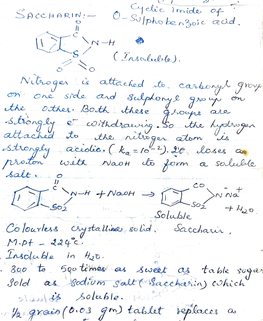 SACCHARIN:- Cyclic imide of
O-Sulphobenzoic acid.
O
C
N-H
S
O O
(Insoluble).
Nitrogen is attached to carbonyl group
on one side and sulphonyl group on
the other. Both these groups are
strongly e⁻ withdrawing. So the hydrogen
attached to the nitrogen atom is
strongly acidic. (ka = 10⁻²). It loses a
proton with NaOH to form a soluble
salt.
O
C
N-H + NaOH → CO N⁻Na⁺
SO2 SO2 + H2O
Soluble Saccharin.
Colourless crystalline solid.
M.pt - 224°C.
Insoluble in H2O.
300 to 500 times as sweet as table sugar
Sold as Sodium salt (Saccharin) which
is soluble.
1/2 grain (0.03 gm) tablet replaces a